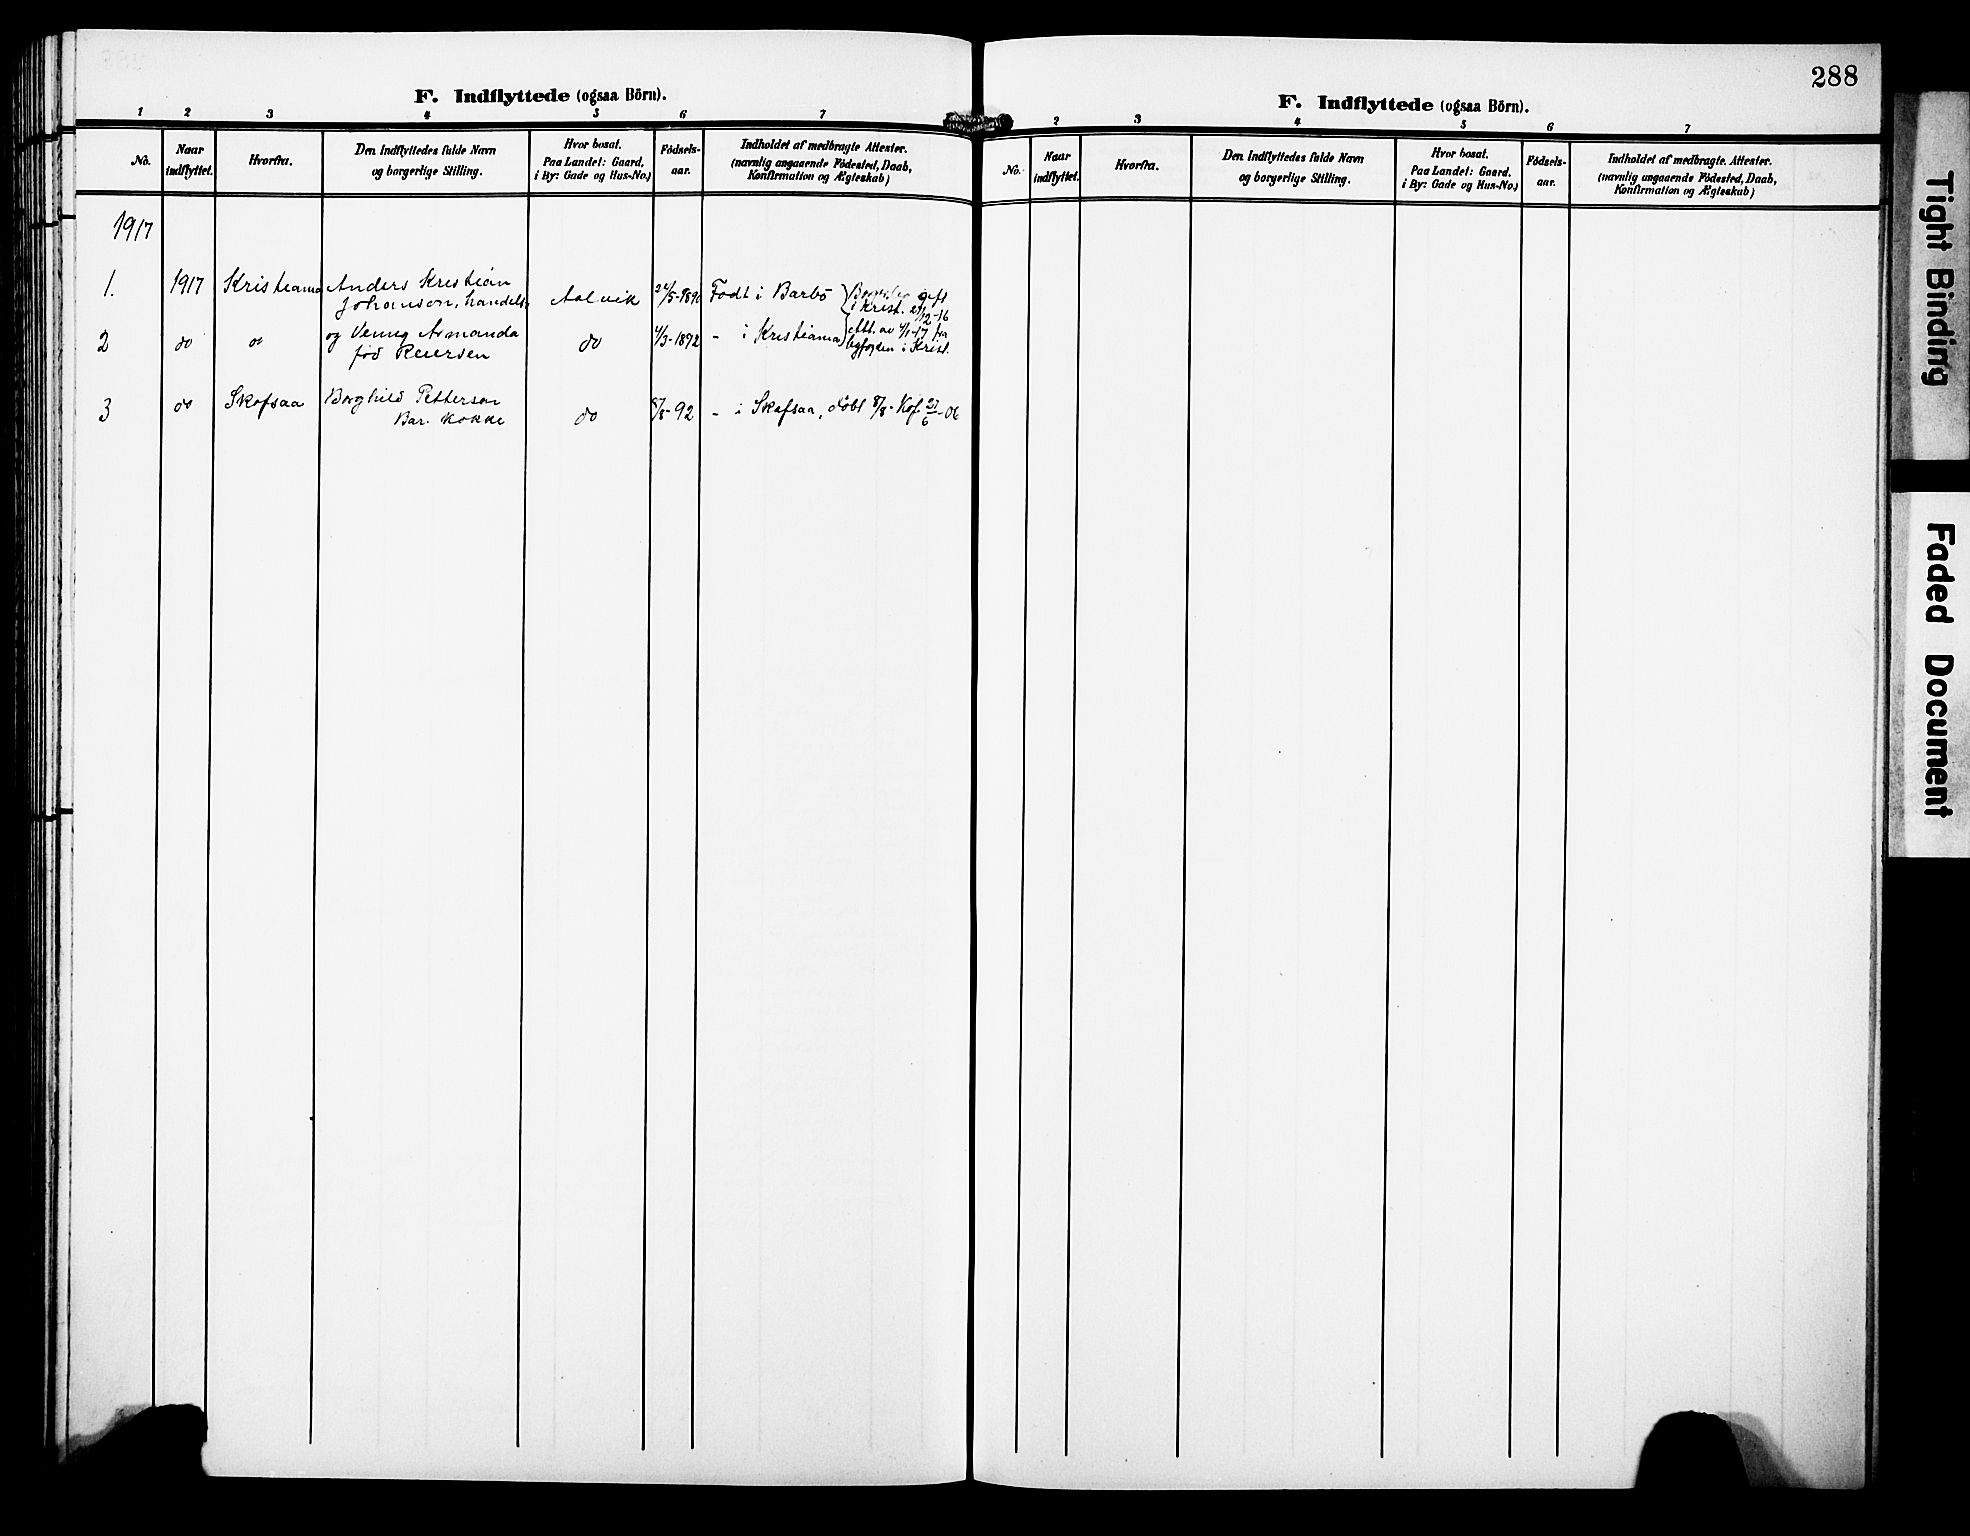 F. Indflyttede (ogsaa Börn).
1 2 3 4 5 6 7
No. Naar indflyttet. Hvorfra. Den Indflyttedes fulde Navn og borgerlige Stilling. Hvor bosat. Paa Landet: Gaard, i By: Gade og Hus-No.) Födsels-aar. Indholdet af medbragte Attester. (navnlig angaaende Födested, Daab, Konfirmation og Ægteskab)
1917
1. 1917 Kristiania Anders Kristian Aalvik 24/5-1890 Født i Barbo Borgerlig gift
Johansen, handels. i Krist. 27/12-16
2 do do og Venny Armanda do 4/3-1892 - i Kristiania Att. av 4/1-17 fra
fød Reiersen byfogden i Krist.
3 do Skofsaa Borghild Petterson do 8/8-92 - i Skofsaa, døbt 8/8- Kof. 27/6-06
Bar. Kokke
288
F. Indflyttede (ogsaa Börn).
2 3 4 5 6 7
No. Naar indflyttet. Hvorfra. Den Indflyttedes fulde Navn og borgerlige Stilling. Hvor bosat. Paa Landet: Gaard, i By: Gade og Hus-No.) Födsels-aar. Indholdet af medbragte Attester. (navnlig angaaende Födested, Daab, Konfirmation og Ægteskab)
Tight Binding
Faded Document